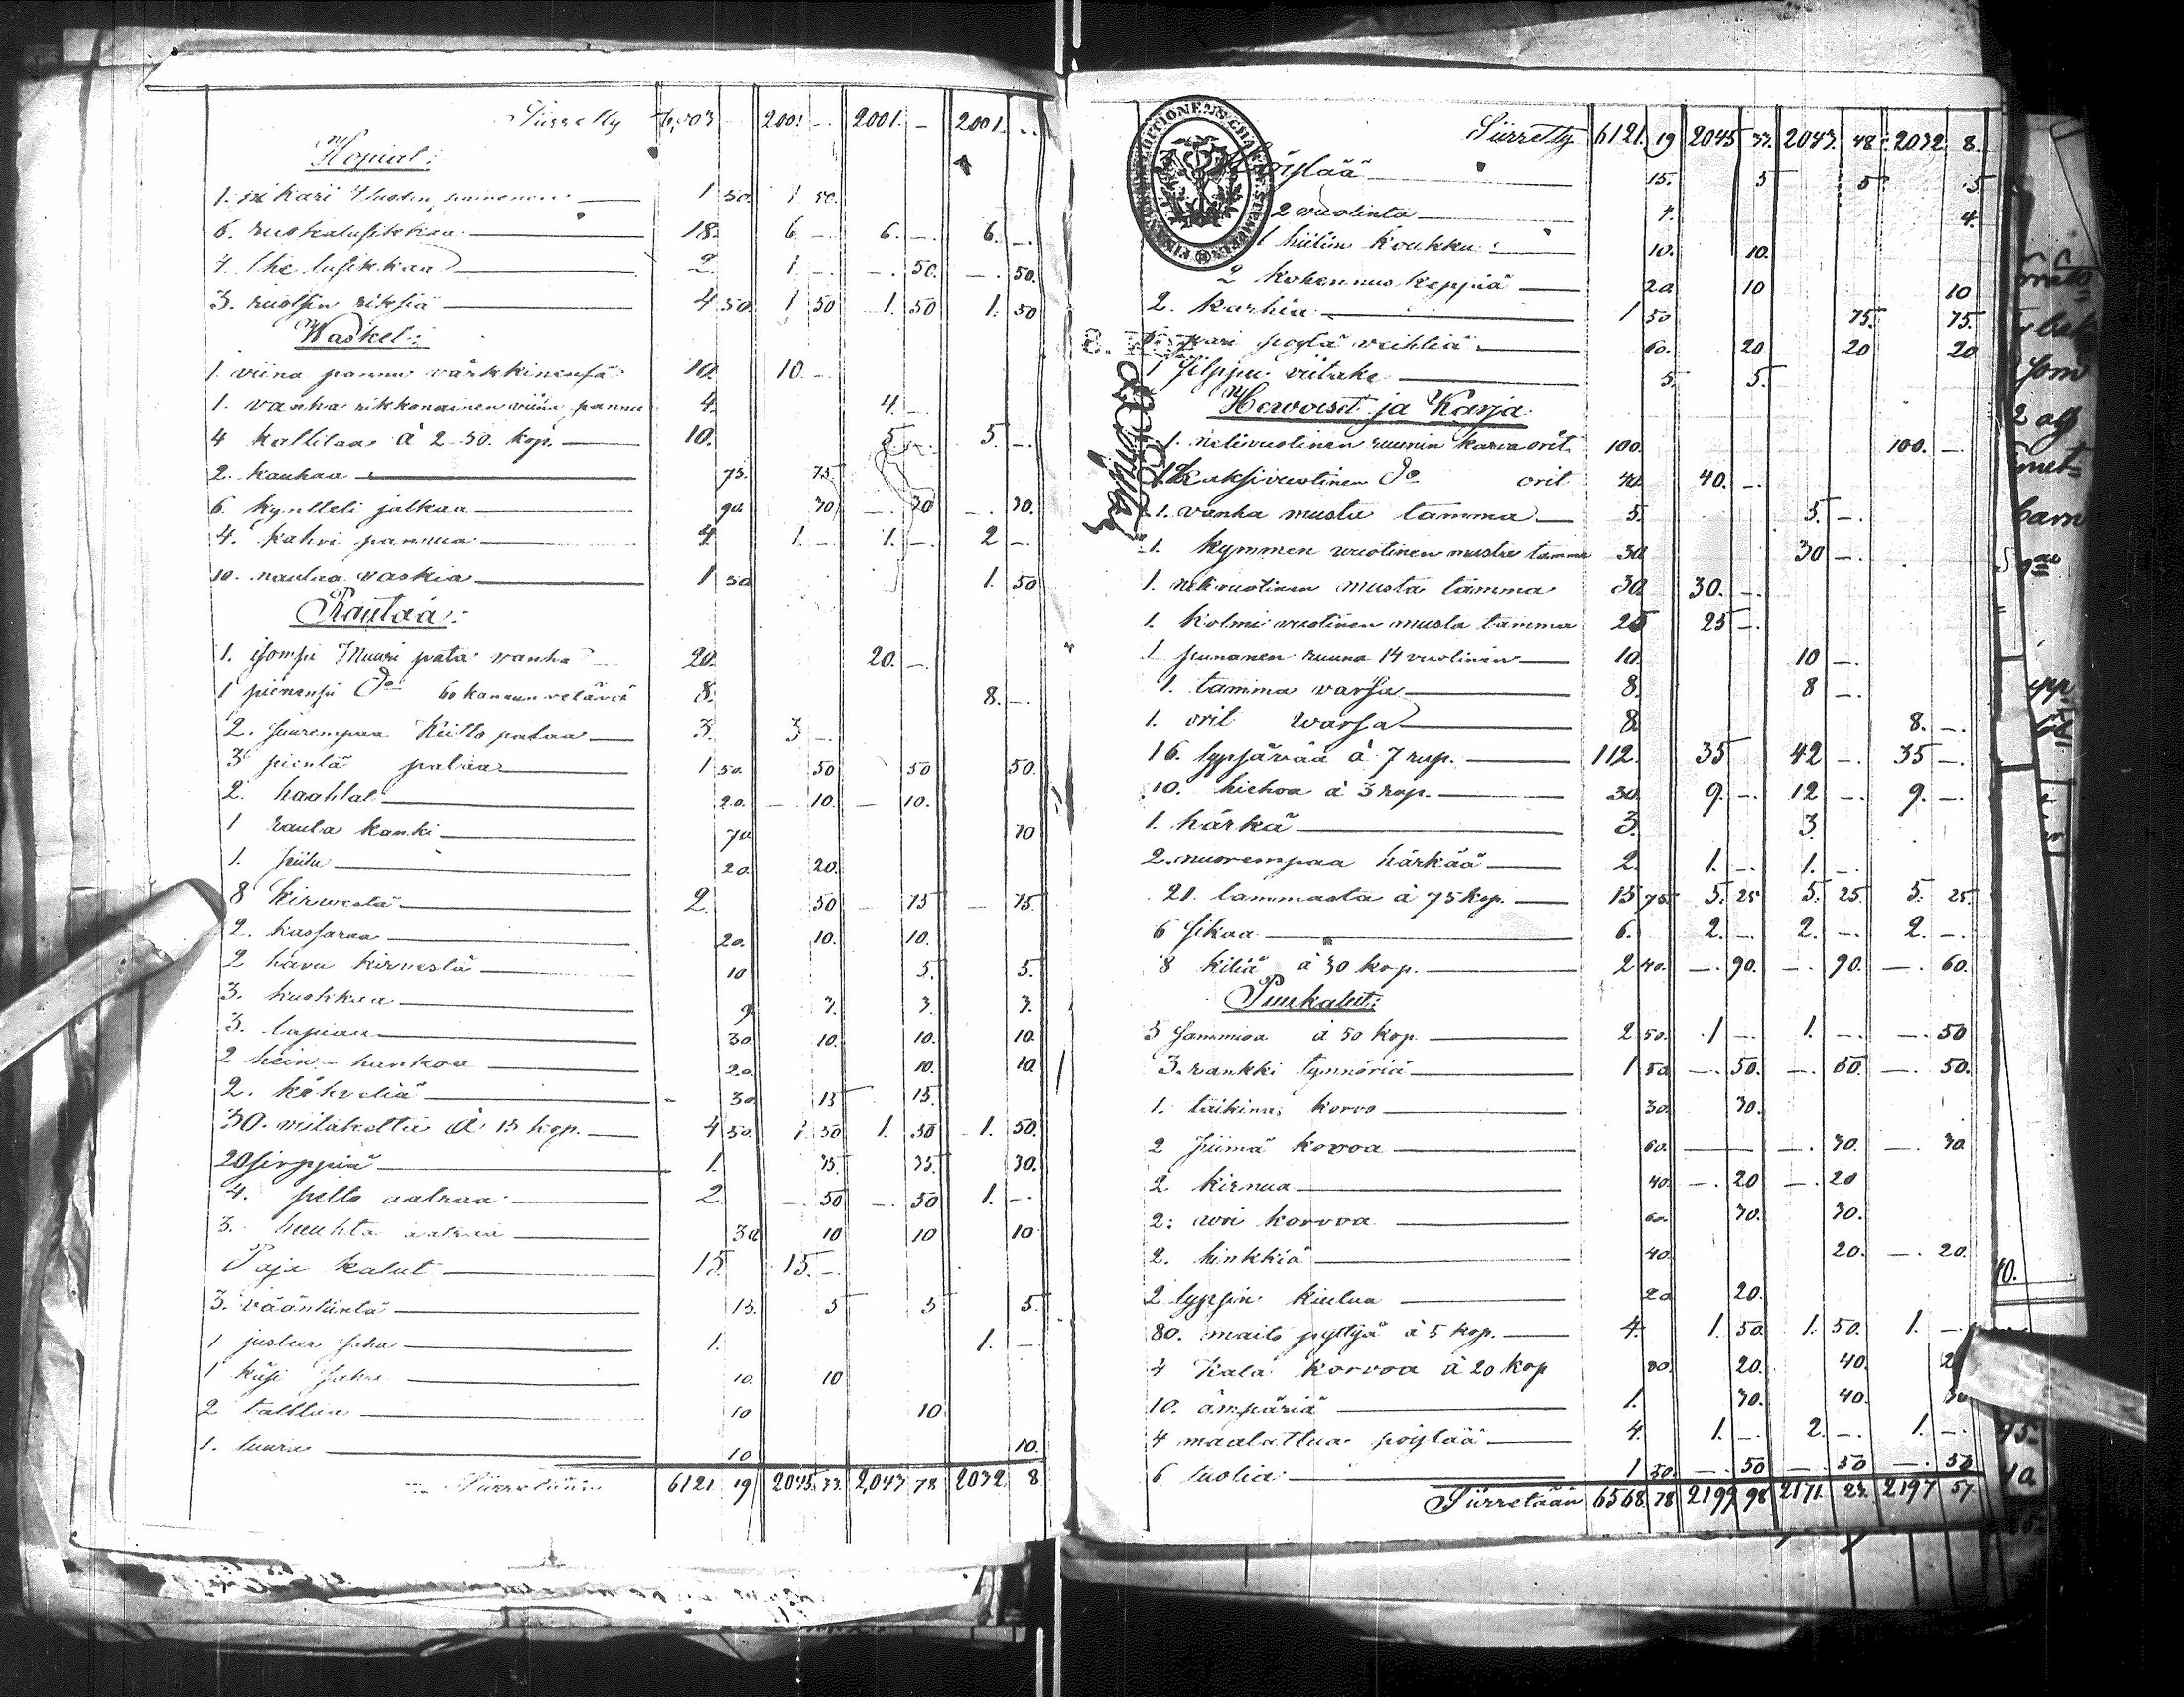 Siirretty 6,003 2001. - 2001. - 2001. -
Hopiat:
1. pikari 4 luodin painonen 1 50. 1 50.
6. ruokalusikkaa 18. 6. - 6. - 6. -
4. the lusikkaa 2. 1. - - 50. - 50.
3. ruotsin riksiä 4 50. 1 50 1. 50 1. 50
Wasket:
1. viina pannu värkkinensä 10. 10. -
1. vanha rikkonainen viina pannu 4. 4. -
4 kattilaa à 2 50. kop. 10. 5. - 5. -
2. kauhaa 75. 75
6 kyntteli jalkaa 90. 30 - 30 - 30.
4. kahvi pannua 4. 1. - 1. - 2 -
10. naulaa vaskia 1 50 1. 50
Rautaa:
1. isompi Muuri pata vanha 20. 20. -
1 pienempi do 60 kannun vetävä 8. 8. -
2. suurempaa Keitto pataa 3. 3 -
3 pientä pataa 1 50. 50 50 50.
2. haahlat 20. - 10. - 10.
1 rauta kanki 70. 70
1. piilu 20. 20.
8 kirvestä 2. 50 - 75 - 75.
2. kassaraa 20. 10. 10.
2 havu kirvestä 10 5. 5.
3. kuokkaa 9. 3. 3. 3.
3. lapiaa 30. 10. 10. 10.
2 hein-hankoa 20. 10. 10.
2. köhveliä 30. 15 15.
30. viitaketta à 15 kop. 4 50. 1 50 1. 50 1. 50.
20 sirppiä 1. 35 35 30.
4. pelto aatraa 2 - 50 - 50 1. -
3. huuhta aatraa 30 10 10 10
Paja kalut 15. 15. -
3. vääntiintä 15. 5 5 5.
1 justeer saha 1. 1. -
1 käsi saha 10. 10
2 talttaa 10 10
1. tuura 10 10.
Siirretään 6121 19 2045. 33. 2,043 78 2032. 8
Siirretty 6121. 19 2045 33. 2043. 48. 2032. 8.
15. 5 5. 5
2 vuolinta 4. 4.
1 hiilin koukku 10. 10.
2 kohennus keppiä 20 10 10
2. karhia 1 50 75. 75.
pari 60. 20 20 20
1 silppu viitake 5. 5.
Hevoiset ja Karja
1. nelivuotinen ruunin karva orit 100. 100. -
1. kaksivuotinen do orit 40. 40. -
1. vanha musta tamma 5. 5. -
1. kymmen vuotinen musta tamma 30 30 -
1. neli vuotinen musta tamma 30 30. -
1. kolmi vuotinen musta tamma 25 25 -
1 punanen ruuna 14 vuotinen 10. 10 -
1. tamma varsa 8. 8 -
1. orit varsa 8. 8. -
16. lypsävää à 7 rup. 112. 35 42 - 35 -
10. hiehoa à 3 rup. 30. 9. - 12 - 9. -
1. härkä 3. 3.
2. nuorempaa härkää 2. 1. - 1. -
21. lammasta à 75 kop. 15 75. 5. 25 5. 25. 5. 25.
6 sikaa 6. 2. - 2. - 2. -
8 kiliä à 30 kop. 2 40. - 90. - 90. - 60.
Puukalut:
5 sammioa à 50 kop. 2 50. 1 - 1. - - 50
3. rankki tynnöriä 1 50 - 50. - 50. - 50.
1. taikina korvo 30. 30.
2 piimä korvoa 60. - 30. - 30.
2 kirnua 40. - 20 - 20
2. korvoa 60. 30. 30.
2. hinkkiä 40. 20. - 20.
2 lypsin kiulua 20 20.
80. maito pyttyä à 5 kop. 4. 1. 50 1. 50. 1. -
4 Kala korvoa à 20 kop 80. 20. 40.
10. ämpäriä 1. 30. 40. 30
4 maalattua pöytää 4. 1. - 2. - 1. -
6 tuolia 1 50. - 50 - 50 - 50
Siirretään 6568. 78 2199 98 2171. 23. 2197 57.